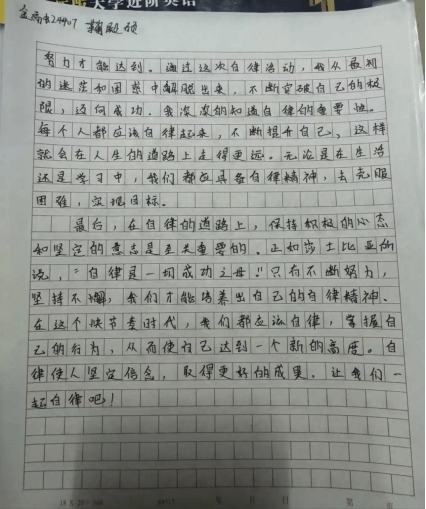 大学进阶英语
努力才能达到。通过这次自律活动，我从最初
的迷茫和困惑中解脱出来，不断突破自己的极
限，迈向成功。我深深的知道自律的重要性。
每个人都应该自律起来，不断提升自己，这样
就会在人生的道路上走得更远。无论是在生活
还是学习中，我们都应具备自律精神，去克服
困难，实现目标。
最后，在自律的道路上，保持积极的心态
和坚定的意志是至关重要的。正如莎士比亚所
说，“自律是一切成功之母。”只有不断努力，
坚持不懈，我们才能培养出自己的自律精神、
在这个快节奏时代，我们都应该自律，掌握自
己的行为，从而使自己达到一个新的高度。自
律使人坚定信念，取得更好的成果。让我们一
起自律吧！
年 月 日 第 页